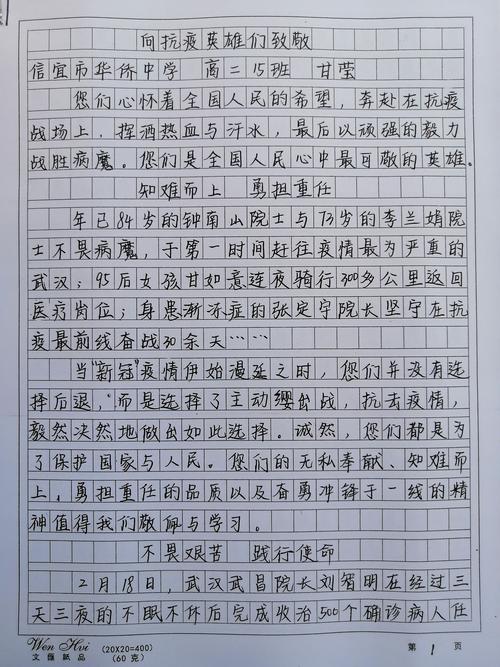 向抗疫英雄们致敬
信宜市华侨中学 高二15班 甘莹
您们心怀着全国人民的希望，奔赴在抗疫
战场上，挥洒热血与汗水，最后以顽强的毅力
战胜病魔。您们是全国人民心中最可敬的英雄。
知难而上 勇担重任
年已84岁的钟南山院士与73岁的李兰娟院
士不畏病魔，于第一时间赶往疫情最为严重的
武汉；95后女孩甘如意连夜骑行300多公里返回
医疗岗位；身患渐冻症的张定宇院长坚守在抗
疫最前线奋战30余天……
当"新冠"疫情伊始漫延之时，您们并没有选
择后退，而是选择了主动缨出战，抗击疫情，
毅然决然地做出如此选择。诚然，您们都是为
了保护国家与人民。您们的无私奉献、知难而
上，勇担重任的品质以及奋勇冲锋于一线的精
神值得我们敬佩与学习。
不畏艰苦 践行使命
2月18日，武汉武昌院长刘智明在经过三
天三夜的不眠不休后完成收治500个确诊病人任
Wen Hvi (20X20=400) 第 1 页
文雁纸品 (60克)